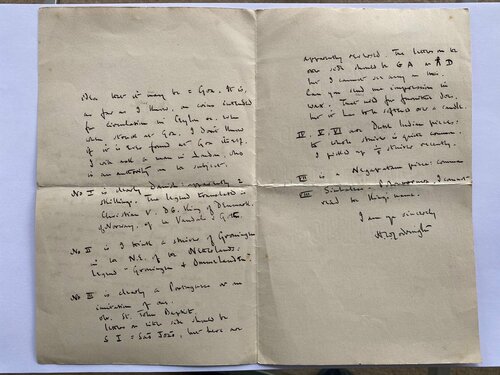 idea that it may be = Goa. It is,
as far as I know, a coin intended
for circulation in Ceylon or, when
struck at Goa. I don't know
if it is ever found at Goa itself.
I will ask a man in London, who
is an authority on the subject.
No I is clearly Danish: apparently 2
skillings. The legend translated is
Christian V. D.G. King of Denmark
of Norway, of the Vandals & Goths.
No II is I think a stuiver of Groningen
in the N.E. of the Netherlands.
Legend = Groningen & Ommelanden.
No III is clearly a Portuguese or an
imitation of one.
obv. St. John Baptist.
letters on either side should be
S I = São João, but here are
apparently reversed. The letters on the
other side should be G A or A D
but I cannot see any in this.
Can you send me impressions in
wax. That used for furniture does,
but it has to be softened over a candle.
IV. V. VI are Dutch Indian pieces:
the whole stuiver is quite common.
I picked up ½ stuiver recently.
VII is a Negapatam piece: common
VIII Sinhalese. I cannot
read the King's name.
I am yrs sincerely